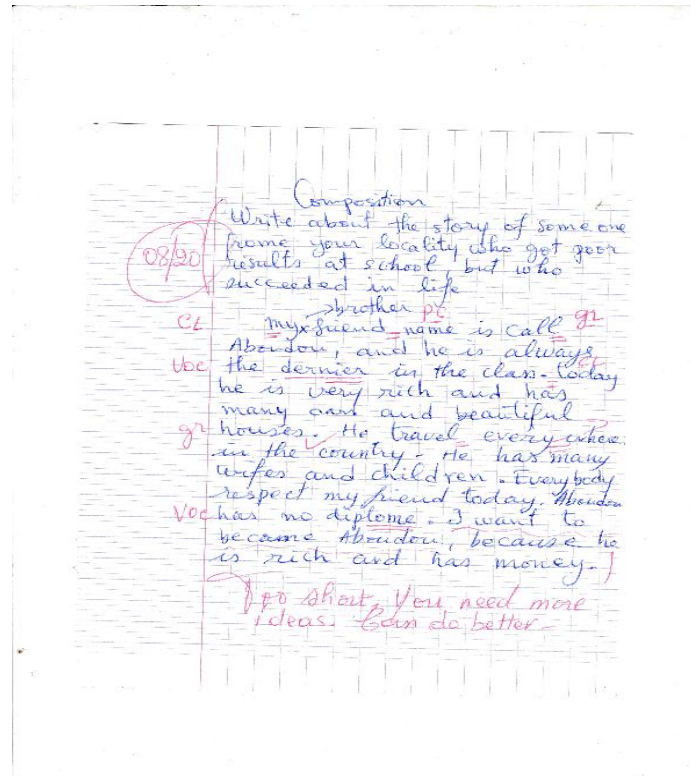 Composition
Write about the story of some one
08/20 frome your locality who got poor
results at school but who
succeeded in life
brother pc
CL my friend name is call gr
Aboudou, and he is always
Voc the dernier in the class. today
he is very rich and has
many and beautiful
gr houses. He travel every where
in the country. He has many
wifes and children. Everybody
respect my friend today. Aboudou
Voc has no diplome. I want to
become Aboudou, because he
is rich and has money.
Too short, You need more
ideas. Can do better